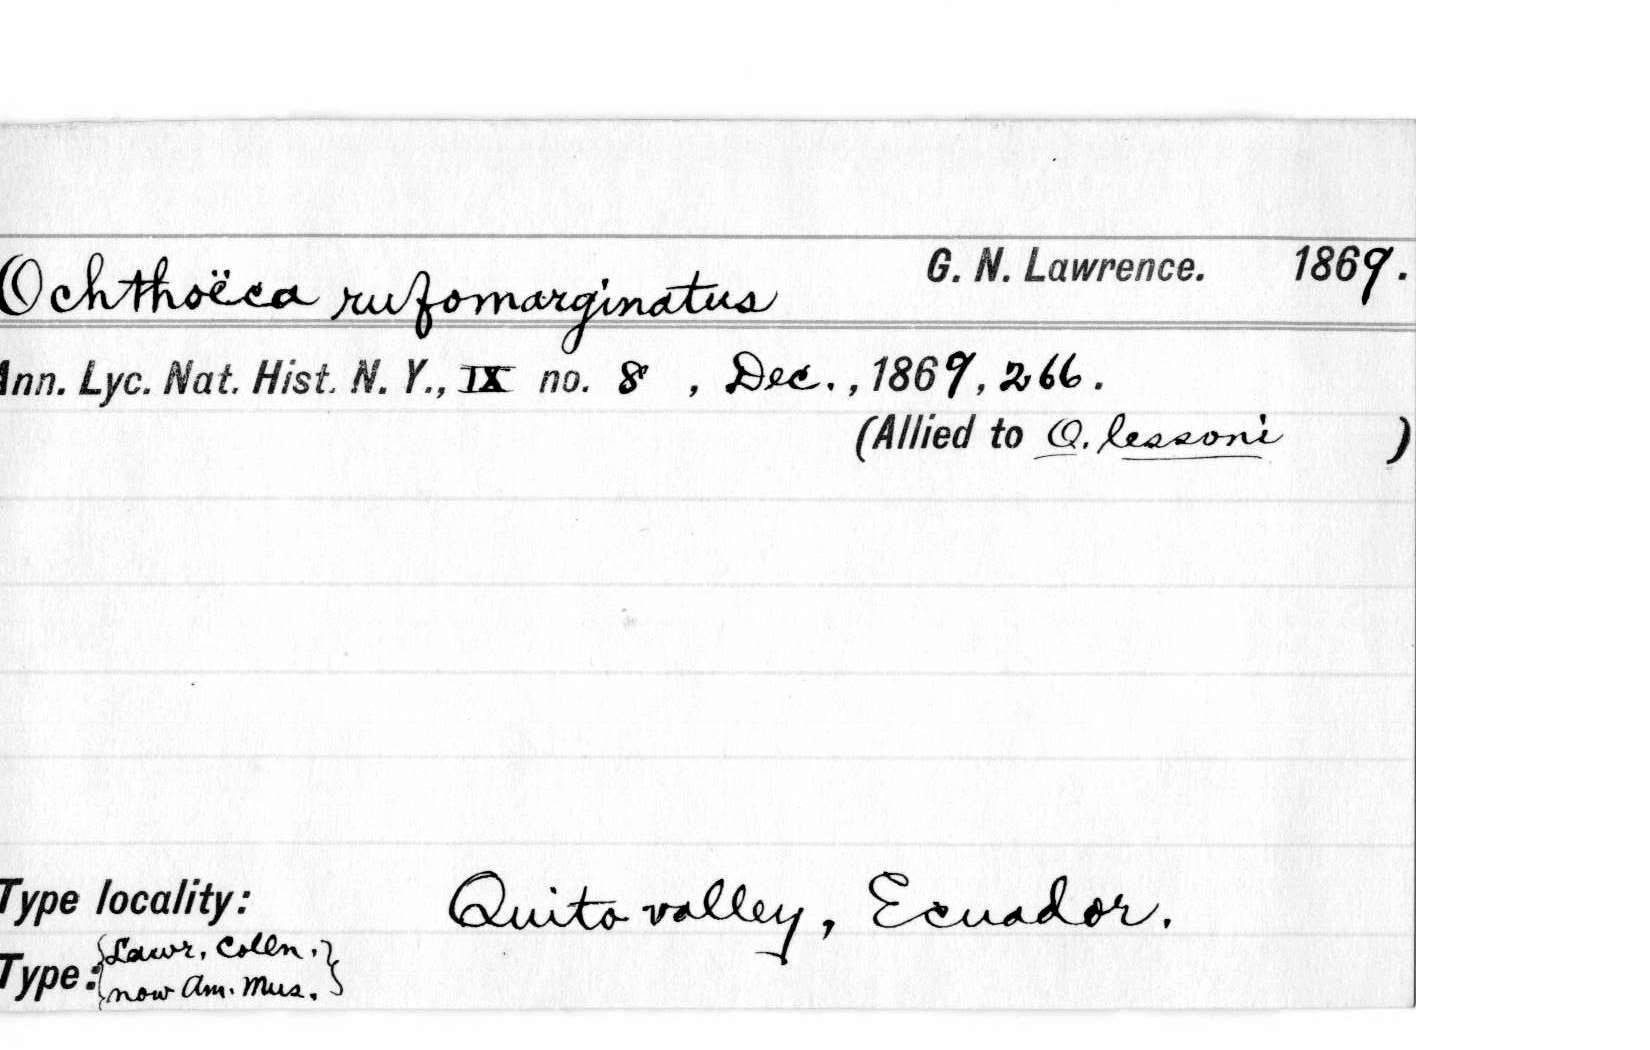 Ochthoëca rufomarginatus G. N. Lawrence. 1869.
Ann. Lyc. Nat. Hist. N. Y., IX no. 8 , Dec. , 1869, 266.
(Allied to O. lessoni )
Type locality: Quito valley, Ecuador.
Type: {Lawr. Colln.}
{now Am. Mus.}